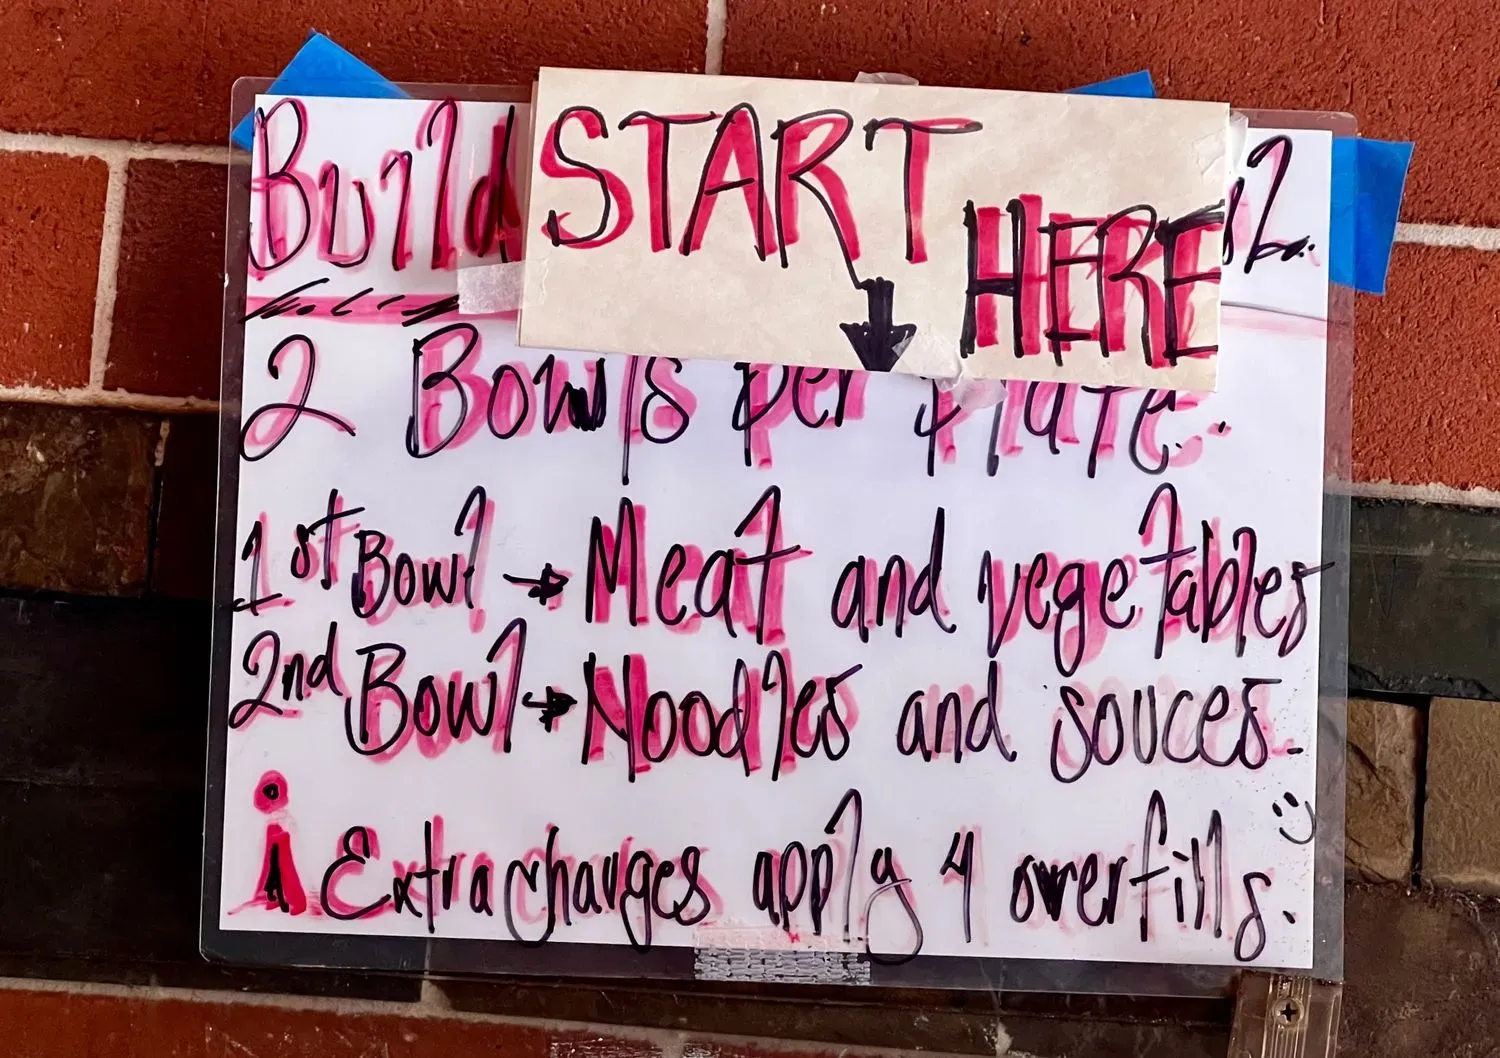 START
HERE
Build
2 Bowls per Plate.
1st Bowl → Meat and vegetables
2nd Bowl → Noodles and souces.
i Extra charges apply 4 overfills.